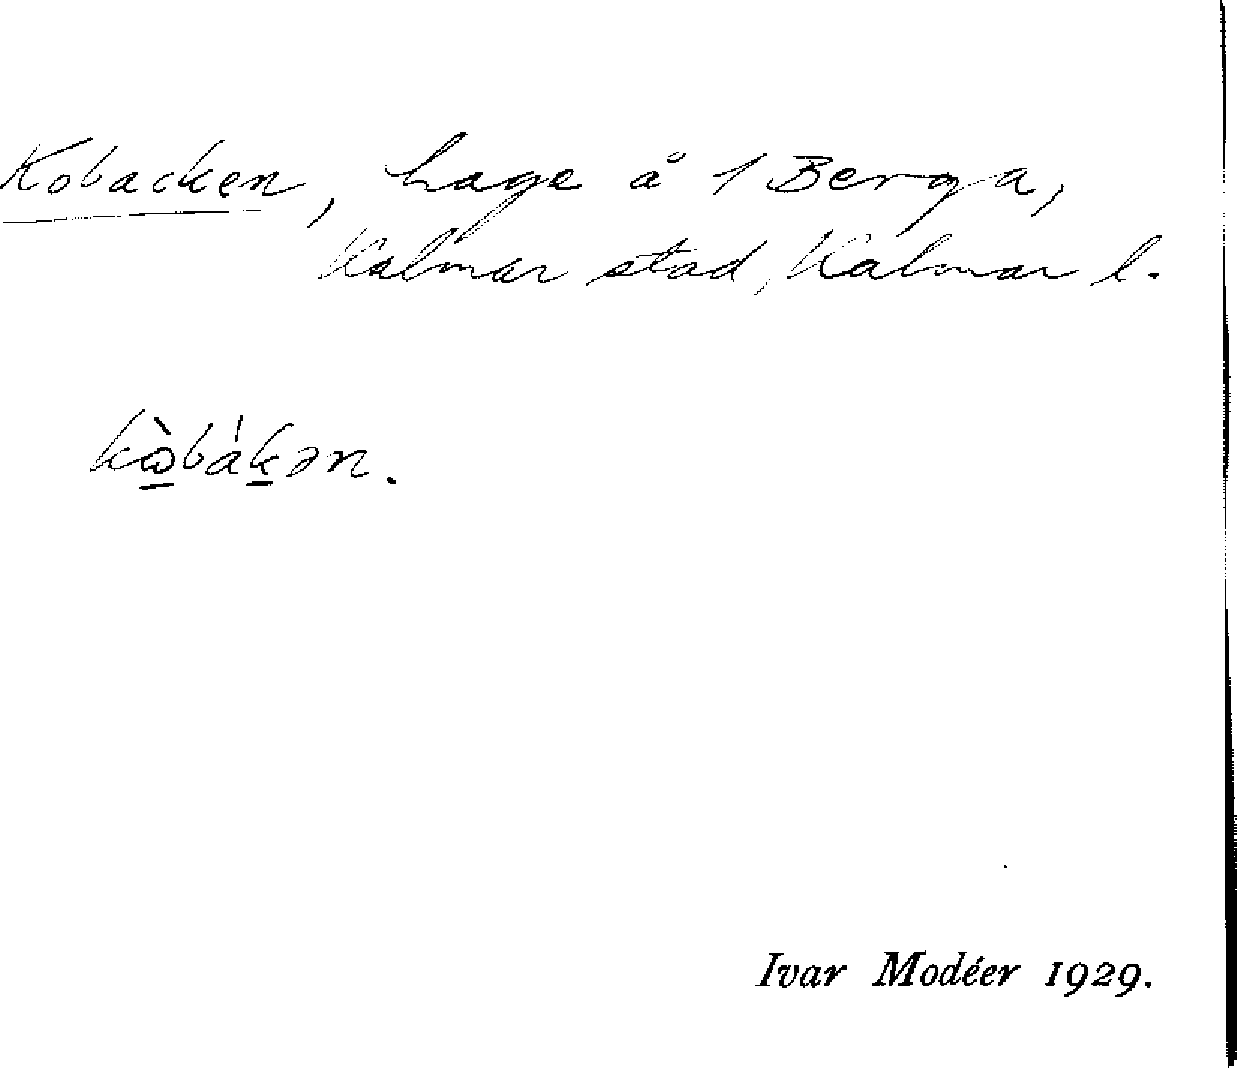 Kobacken, hage å 1 Berga,
Kalmar stad, Kalmar l.
kɷ̠̀bák̠ən.
Ivar Modéer 1929.